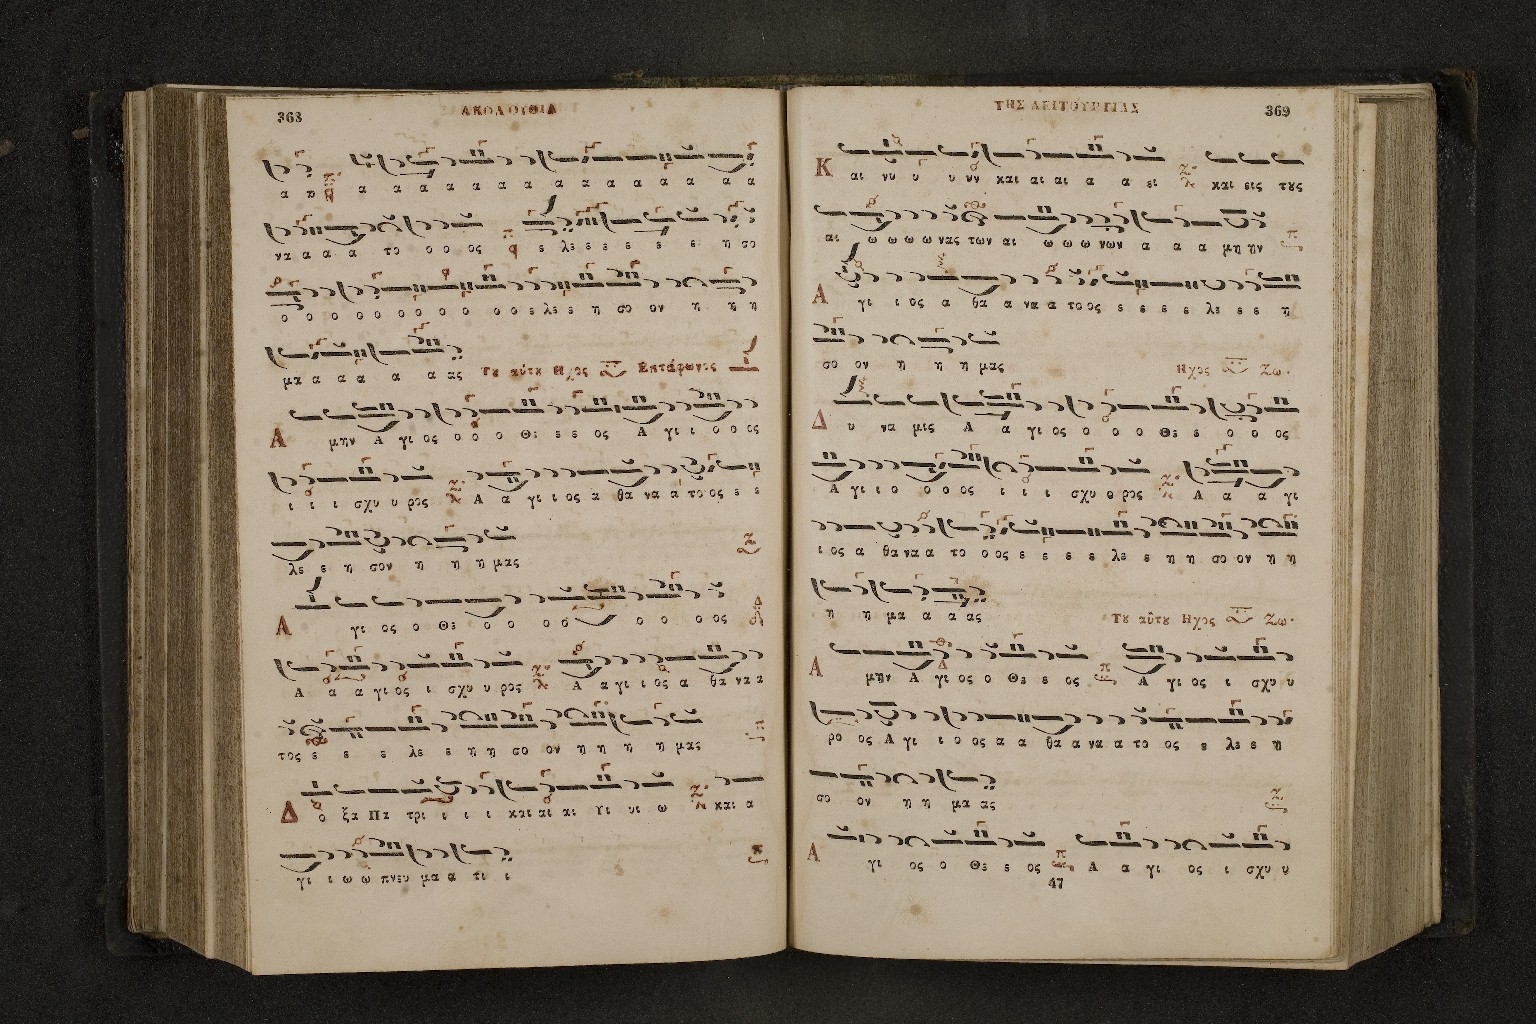 368
ΑΚΟΛΟΥΘΙΑ
α α α α α α α α α α α α α α α α
να α α α το ο ο ος ε λε ε ε ε ε ε η σο
ο ο ο ο ο ο ο ο ο ο ο ε λε ε η σο ον η η η
μα α α α α α ας Τȣ αὐτȣ Ηχος Επτάφωνος
Α μην Α γι ος ο ο ο Θε ε ε ος Α γι ι ο ο ος
ι ι ι σχυ υ ρος Α α γι ι ος α θα να α το ος ε ε
λε ε η σον η η η μας
Α γι ος ο Θε ο ο ο ο ο ο ο ος
Α α α γι ος ι σχυ υ ρος Α α γι ι ος α θα να α
τος ε ε ε λε ε η η σο ον η η η η μας
Δ ο ξα Πα τρι ι ι ι και αι αι Υι υι ω και α
γι ι ω ω πνευ μα α τι ι
ΤΗΣ ΛΕΙΤΟΥΡΓΙΑΣ
369
Κ αι νυ υ υ υν και αι αι α α ει και εις τȣς
αι ω ω ω ω νας των αι ω ω ω νων α α α μη ην
Α γι ι ος α θα α να α το ος ε ε ε ε λε ε ε η
σο ον η η η μας Ηχος Ζω·
Δ υ να μις Α α γι ος ο ο ο Θε ε ο ο ος
Α γι ι ο ο ο ος ι ι ι σχυ υ ρος Α α α γι
ι ος α θα να α το ο ος ε ε ε ε λε ε η η σο ον η η
η η μα α α ας Τȣ αὐτȣ Ηχος Ζω·
Α μην Α γι ος ο Θε ε ος Α γι ος ι σχυ υ
ρο ος Α γι ι ο ος α α θα α να α το ος ε λε ε η
σο ον η η μα ας
Α γι ος ο Θε ε ος Α α γι ος ι σχυ υ
47